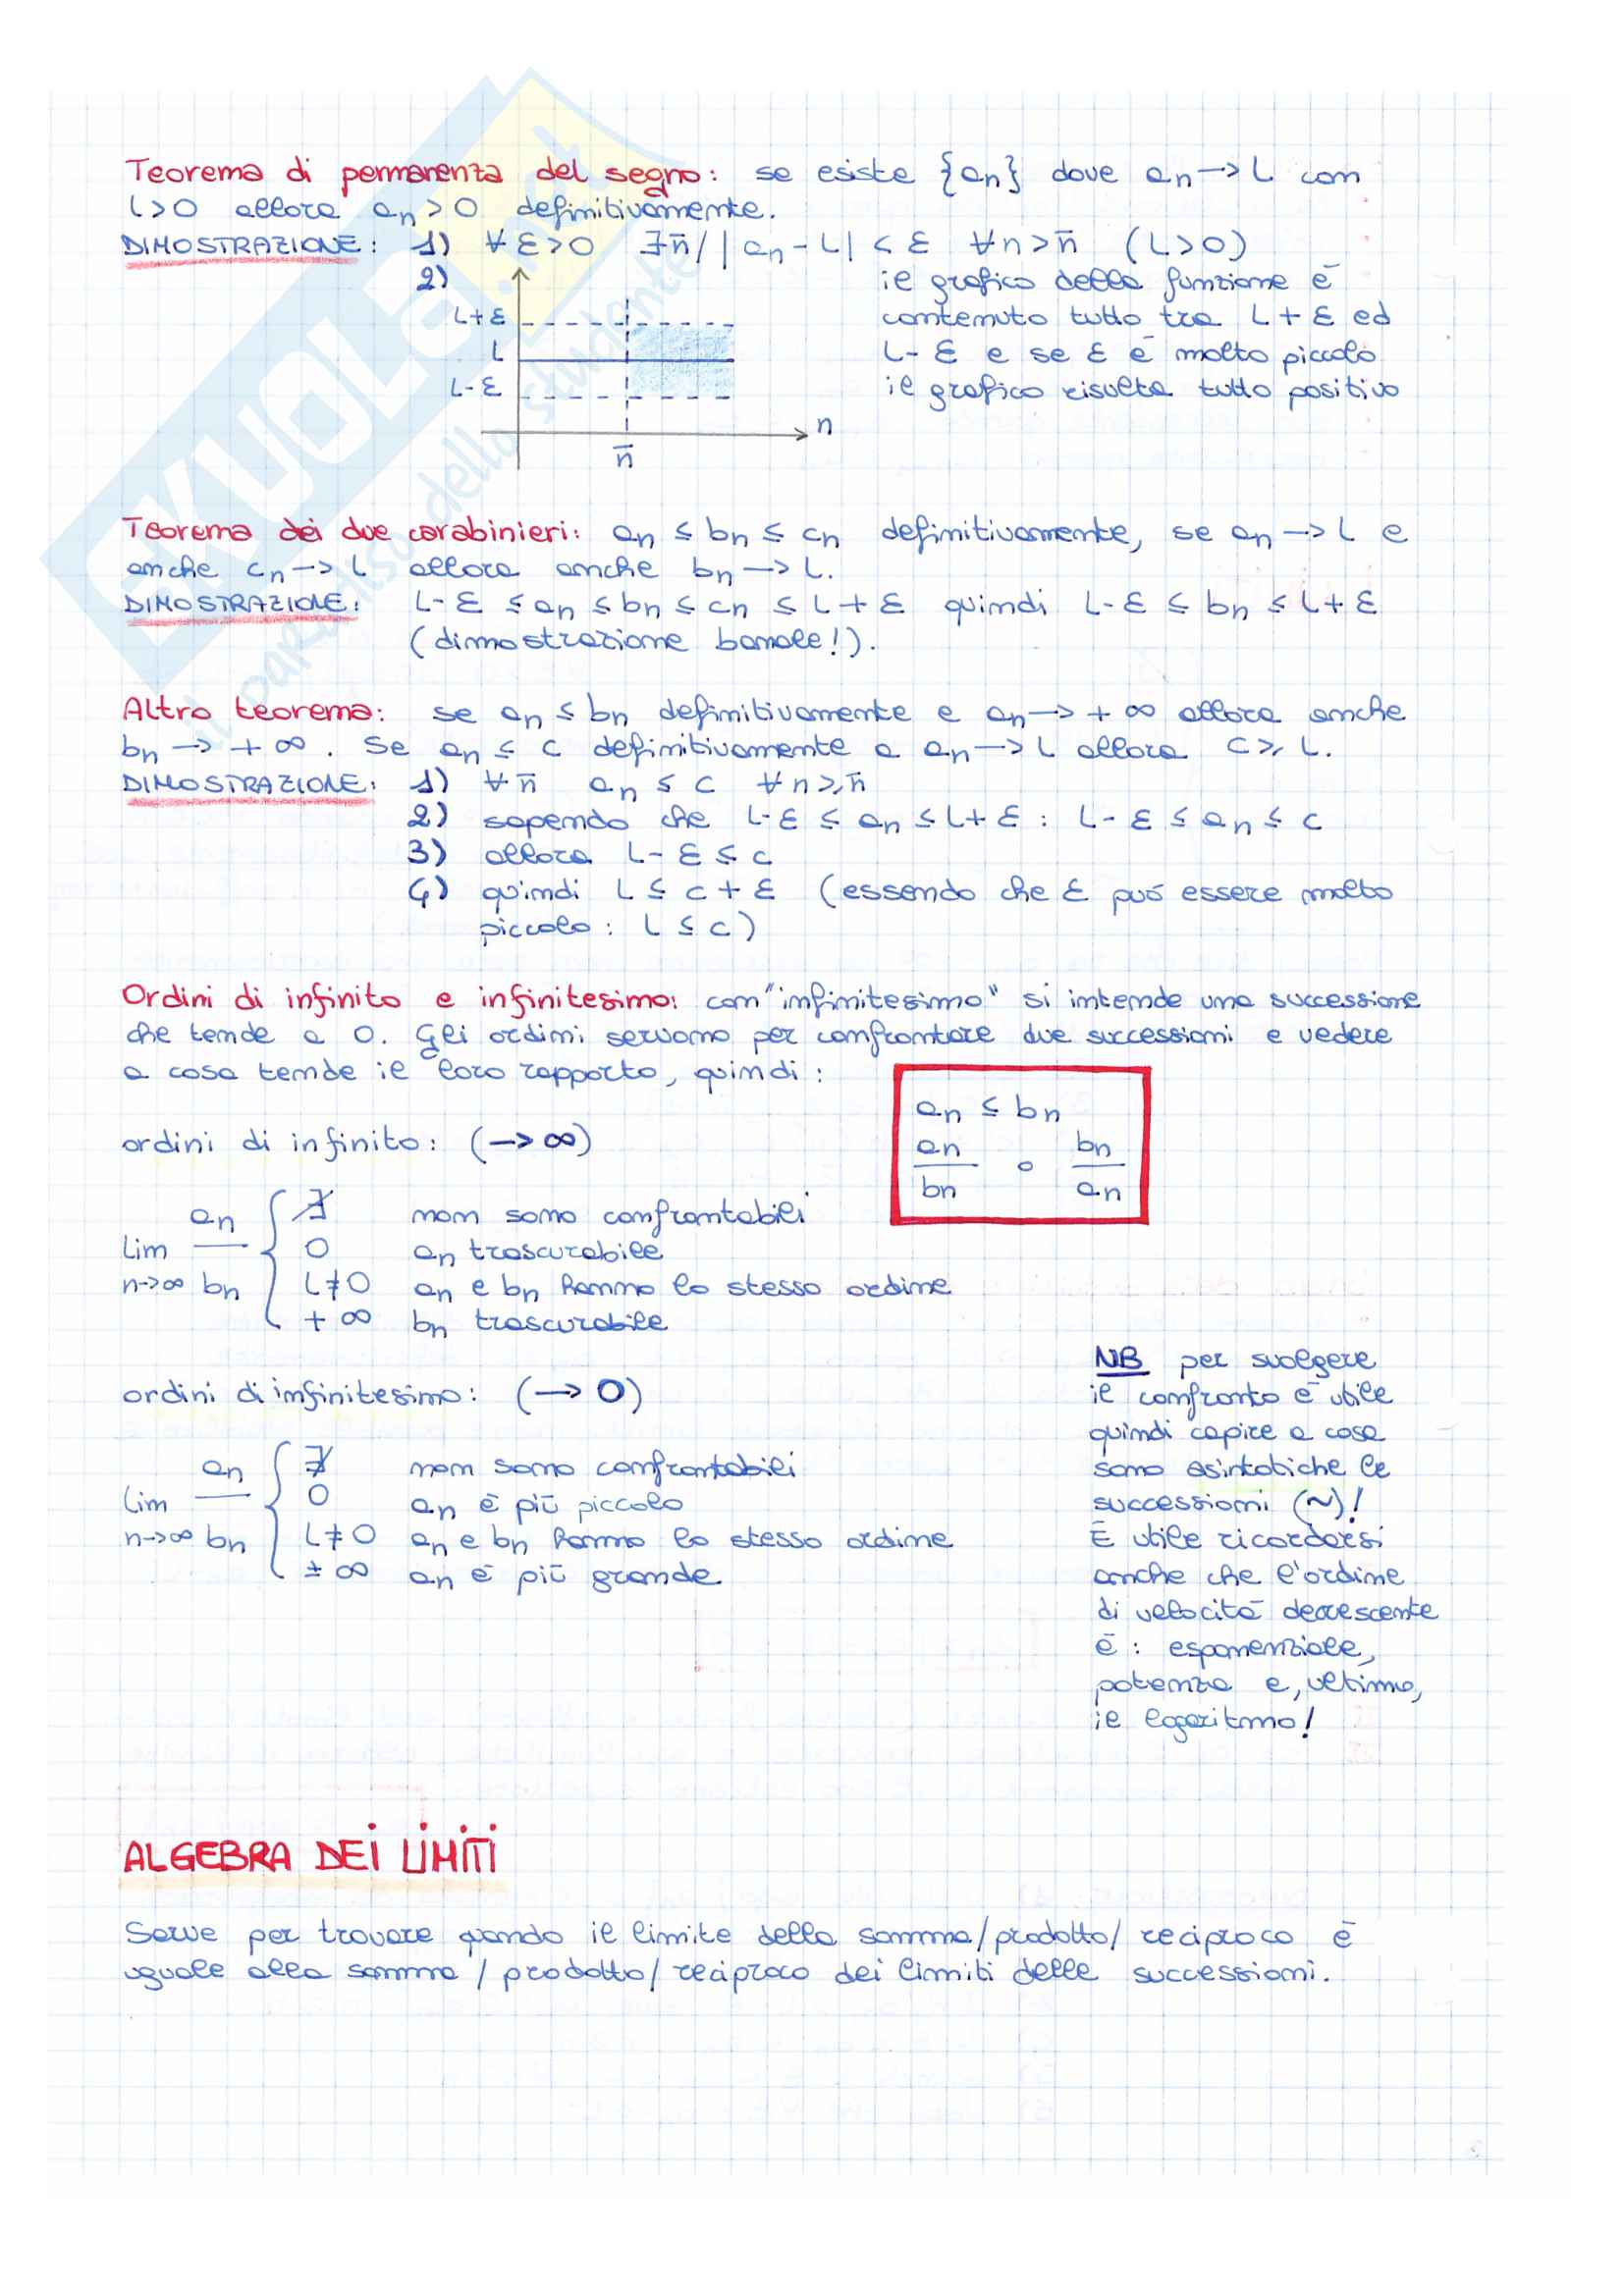 Teorema di permanenza del segno: se esiste {an} dove an → L con
L>0 allora an > 0 definitivamente.
DIMOSTRAZIONE: 1) ∀ ε > 0 ∃n̄ / |an - L| < ε ∀n > n̄ (L>0)
2)
il grafico della funzione è
L+ε
contenuto tutto tra L+ε ed
L
L-ε e se ε è molto piccolo
L-ε
il grafico risulta tutto positivo
n
n̄
Teorema dei due carabinieri: an ≤ bn ≤ cn definitivamente, se an → L e
anche cn → L allora anche bn → L.
DIMOSTRAZIONE: L-ε ≤ an ≤ bn ≤ cn ≤ L+ε quindi L-ε ≤ bn ≤ L+ε
(dimostrazione banale!).
Altro teorema: se an ≤ bn definitivamente e an → +∞ allora anche
bn → +∞. Se an ≤ c definitivamente a an → L allora c ≥ L.
DIMOSTRAZIONE: 1) ∀ n̄ an ≤ c ∀ n ≥ n̄
2) sapendo che L-ε ≤ an ≤ L+ε : L-ε ≤ an ≤ c
3) allora L-ε ≤ c
4) quindi L ≤ c+ε (essendo che ε può essere molto
piccolo : L ≤ c)
Ordini di infinito e infinitesimo: con "infinitesimo" si intende una successione
che tende a 0. Gli ordini servono per confrontare due successioni e vedere
a cosa tende il loro rapporto, quindi :
an ≤ bn
an/bn o bn/an
ordini di infinito: (→ ∞)
lim n→∞ an/bn { ∄ non sono confrontabili
0 an trascurabile
L≠0 an e bn hanno lo stesso ordine
+∞ bn trascurabile
ordini di infinitesimo: (→ 0)
lim n→∞ an/bn { ∄ non sono confrontabili
0 an è più piccolo
L≠0 an e bn hanno lo stesso ordine
±∞ an è più grande
NB per svolgere
il confronto è utile
quindi capire a cosa
sono asintotiche le
successioni (~)!
È utile ricordarsi
anche che l'ordine
di velocità decrescente
è : esponenziale,
potenza e, ultimo,
il logaritmo!
ALGEBRA DEI LIMITI
Serve per trovare quando il limite della somma/prodotto/reciproco è
uguale alla somma/prodotto/reciproco dei limiti delle successioni.
SKUOLA.net
il paradiso dello studente